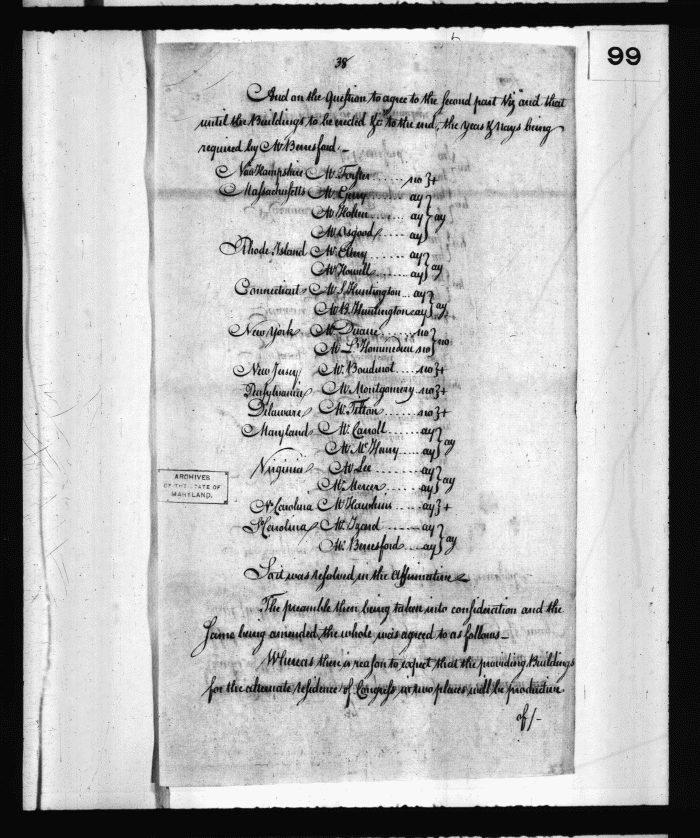 38
99
And on the Question to agree to the second part Viz "and that
until the Buildings to be erected &c to the end", the Yeas & Nays being
required by Mr Beresford.-
New Hampshire Mr. Foster ...... no }+
Massachusetts Mr. Gerry ...... ay }
Mr. Holten ...... ay } ay
Mr. Osgood ..... ay }
Rhode Island Mr. Ellery ...... ay }
Mr. Howell ...... ay } ay
Connecticut Mr. S. Huntington ... ay }
Mr. B. Huntington ay } ay
New York Mr. Duane ..... no }
Mr. L'Hommedieu no } no
New Jersey Mr. Boudinot ..... no }+
Pensylvania Mr. Montgomery .. no }+
Delaware Mr. Tilton ....... no }+
Maryland Mr. Carroll ...... ay }
Mr. McHenry ..... ay } ay
Virginia Mr. Lee ....... ay }
Mr. Mercer ...... ay } ay
No. Carolina Mr. Hawkins .... ay }+
So. Carolina Mr. Izard ...... ay }
Mr. Beresford ..... ay } ay
So it was resolved in the affirmative
ARCHIVES
OF THE STATE OF
MARYLAND.
The preamble then being taken into consideration and the
same being amended, the whole was agreed to as follows-
Whereas there is reason to expect that the providing Buildings
for the alternate residence of Congress in two places will be productive
of/-